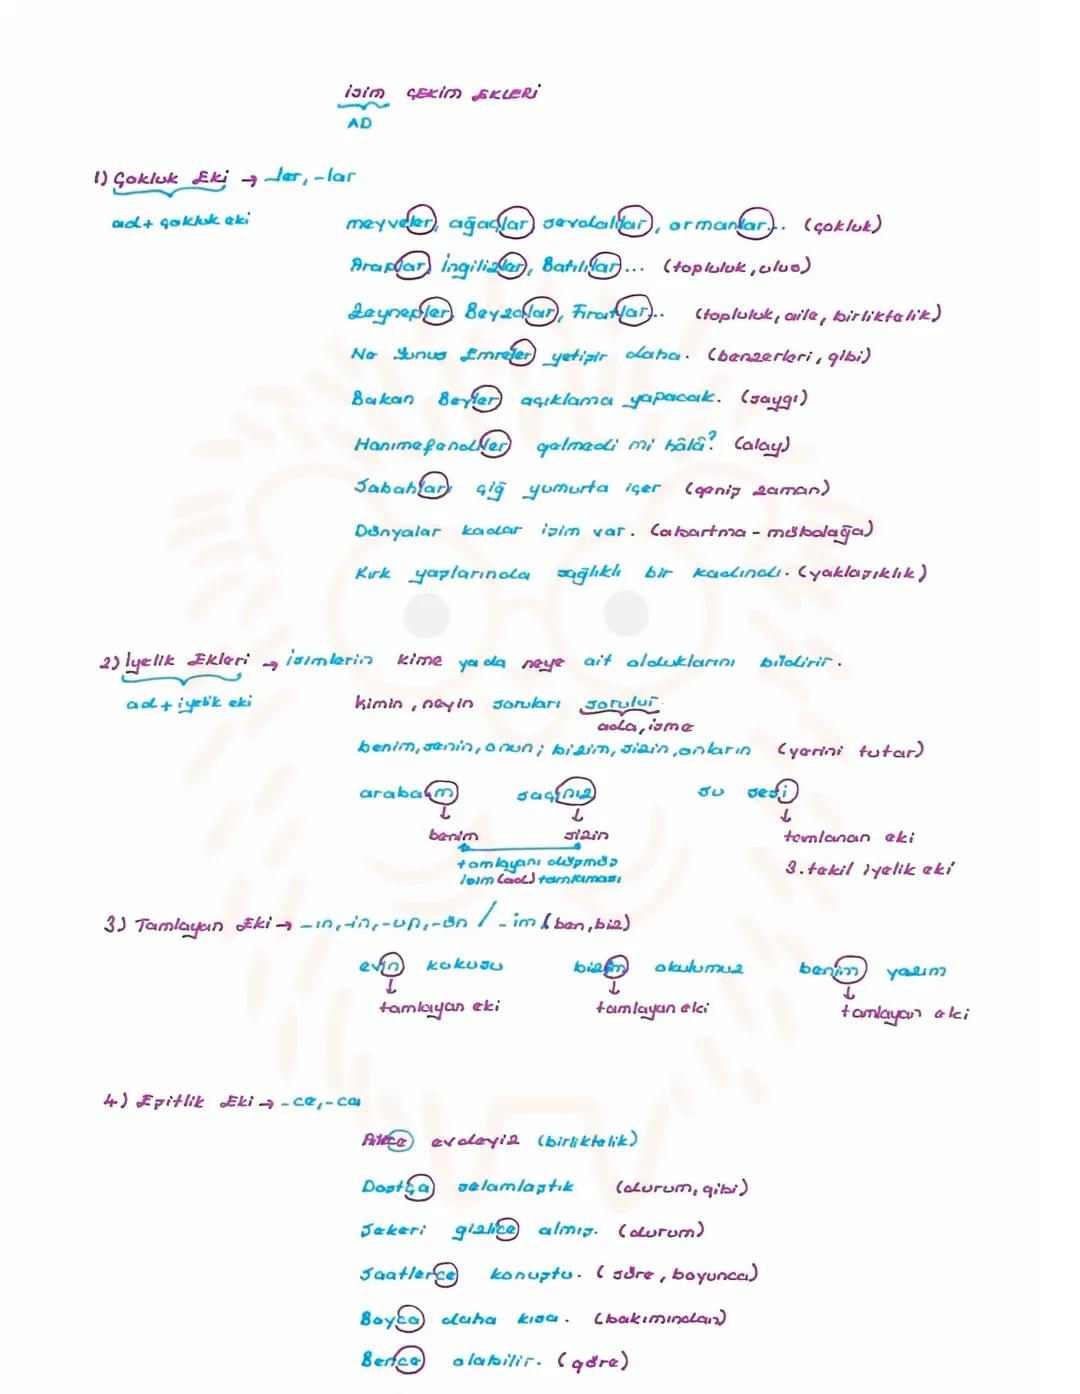 İsim ÇEKİM EKLERİ
AD
1) Çokluk Eki → -ler, -lar
ad + çokluk eki
meyveler, ağaçlar, sevdalılar, ormanlar... (çokluk)
Araplar, İngilizler, Batılılar... (topluluk, ulus)
Zeynepler, Beyzalar, Fıratlar... (topluluk, aile, birliktelik)
Ne Yunus Emreler yetişir daha. (benzerleri, gibi)
Bakan Beyler açıklama yapacak. (saygı)
Hanımefendiler gelmedi mi hâlâ? (alay)
Sabahları çiğ yumurta içer (geniş zaman)
Dünyalar kadar işim var. (abartma - mübalağa)
Kırk yaşlarında sağlıklı bir kadındı. (yaklaşıklık)
2) İyelik Ekleri → isimlerin kime ya da neye ait olduklarını bildirir.
ad + iyelik eki
kimin, neyin soruları sorulur.
ada, isme
benim, senin, onun; bizim, sizin, onların (yerini tutar)
arabam saçınız su sesi
benim sizin tamlanan eki
tamlayanı düşmüş
isim (ad) tamlaması
3. tekil iyelik eki
3) Tamlayan Eki → -ın, -in, -un, -ün / -im (ben, biz)
evin kokusu bizim okulumuz benim yazım
tamlayan eki tamlayan eki tamlayan eki
4) Eşitlik Eki → -ce, -ca
Ailece evdeyiz (birliktelik)
Dostça selamlaştık (durum, gibi)
Şekeri gizlice almış. (durum)
Saatlerce konuştu. (süre, boyunca)
Boyca daha kısa. (bakımından)
Bence olabilir. (göre)